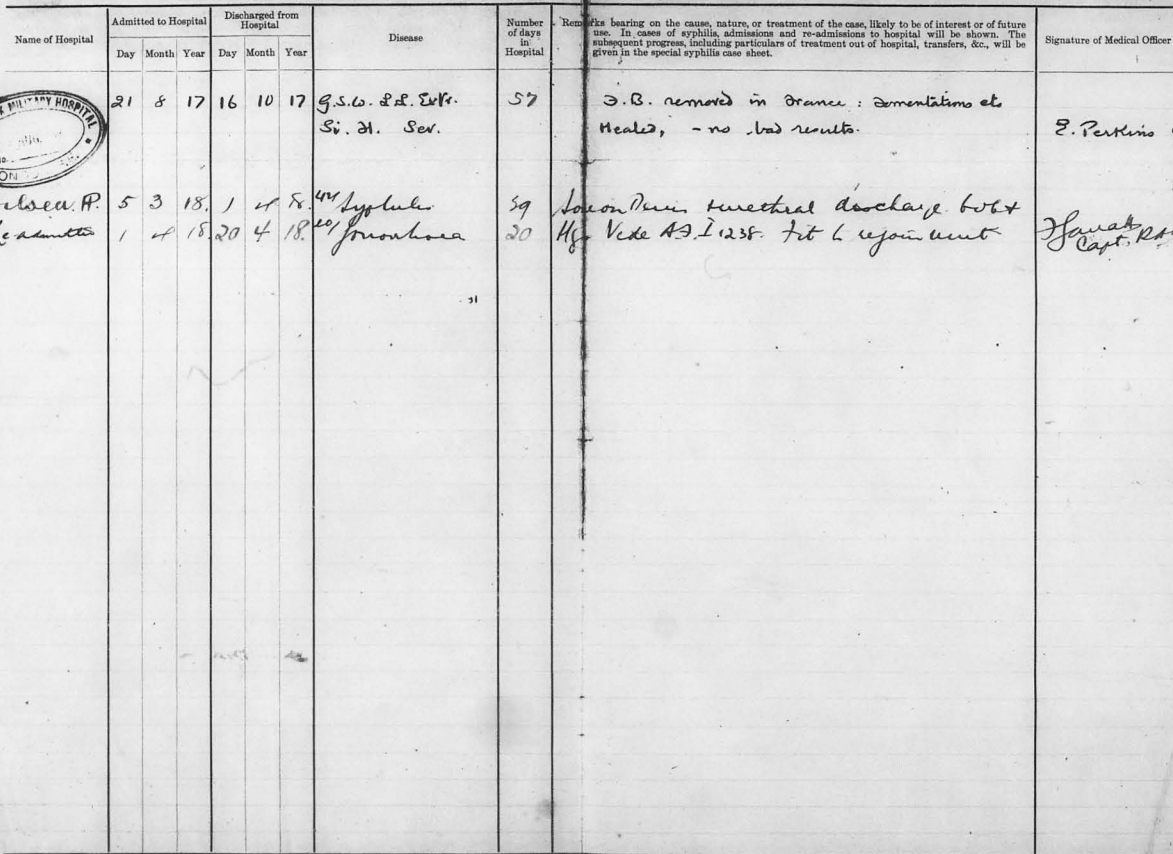 Name of Hospital
Admitted to Hospital
Day Month Year
Discharged from
Hospital
Day Month Year
Disease
Number
of days
in
Hospital
Remarks bearing on the cause, nature, or treatment of the case, likely to be of interest or of future
use. In cases of syphilis, admissions and re-admissions to hospital will be shown. The
subsequent progress, including particulars of treatment out of hospital, transfers, &c., will be
given in the special syphilis case sheet.
Signature of Medical Officer
MILITARY HOSPITAL
21 8 17 16 10 17 G.S.W. Extr. 57 F.B. removed in France : Fomentations etc
Si. Sev. Healed, - no bad results.
E. Perkins
5 3 18. 1 4 18. Syphilis urethral discharge
1 4 18. 20 4 18. Gonorrhoea 20 Hg. Vide A.F. I 1238. Fit to rejoin unit
Capt.